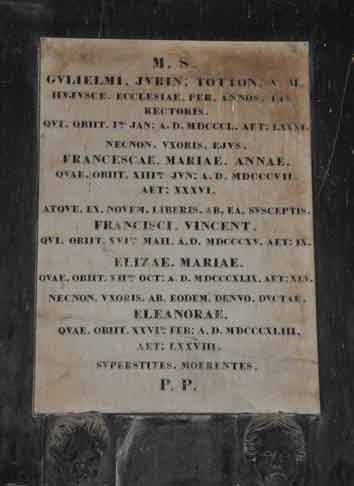 M. S.
GVLIELMI, JVRIN, TOTTON, A. M.
HVJVSCE, ECCLESIAE, PER, ANNOS,
RECTORIS.
QVI, OBIIT, I^MO JAN; A. D. MDCCCL, AET; LXXXI.
NECNON, VXORIS, EJVS,
FRANCESCAE, MARIAE, ANNAE,
QVAE, OBIIT, XIII^MO JVN; A. D. MDCCCVII.
AET; XXXVI.
ATQVE, EX, NOVEM, LIBERIS, AB, EA, SVSCEPTIS,
FRANCISCI, VINCENT,
QVI, OBIIT, XVI^MO MAII, A. D. MDCCCXV, AET; IX.
ELIZAE, MARIAE,
QVAE, OBIIT, OCT; A. D. MDCCCXLIX, AET; XLV.
NECNON, VXORIS, AB, EODEM, DENVO, DVCTAE,
ELEANORAE,
QVAE, OBIIT, XXVI^TO FEB; A. D. MDCCCXLIII,
AET; LXXVIII.
SVPERSTITES, MOERENTES,
P. P.